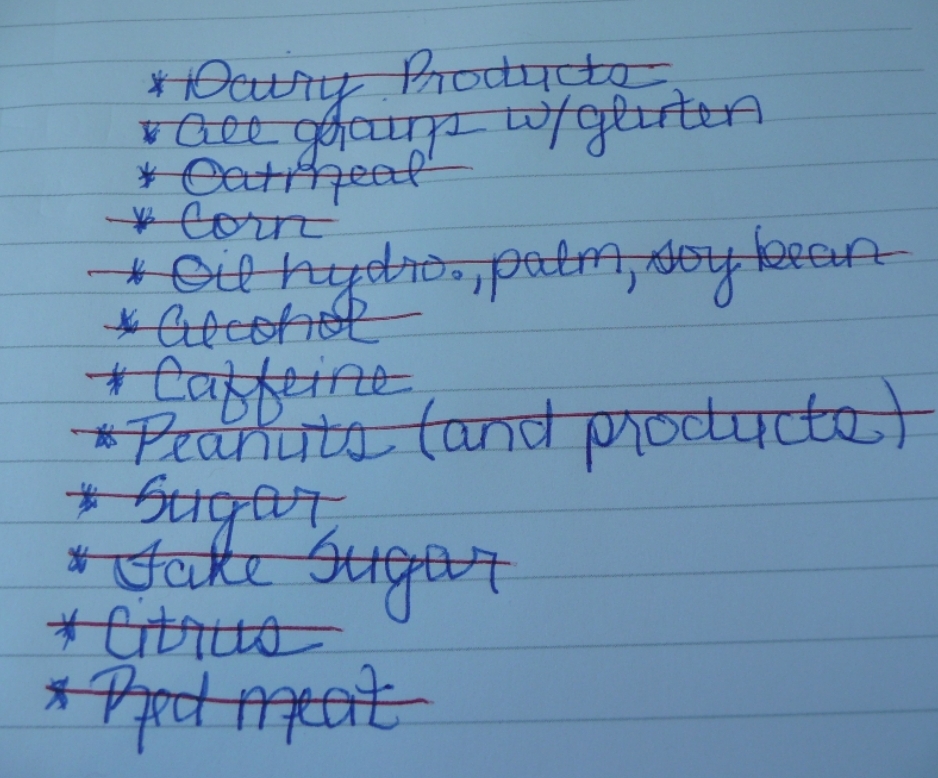 * Dairy Products
* all grains w/gluten
* Oatmeal
* Corn
* Oil hydro., palm, soy bean
* Alcohol
* Caffeine
* Peanuts (and products)
* Sugar
* Fake Sugar
* Citrus
* Red meat